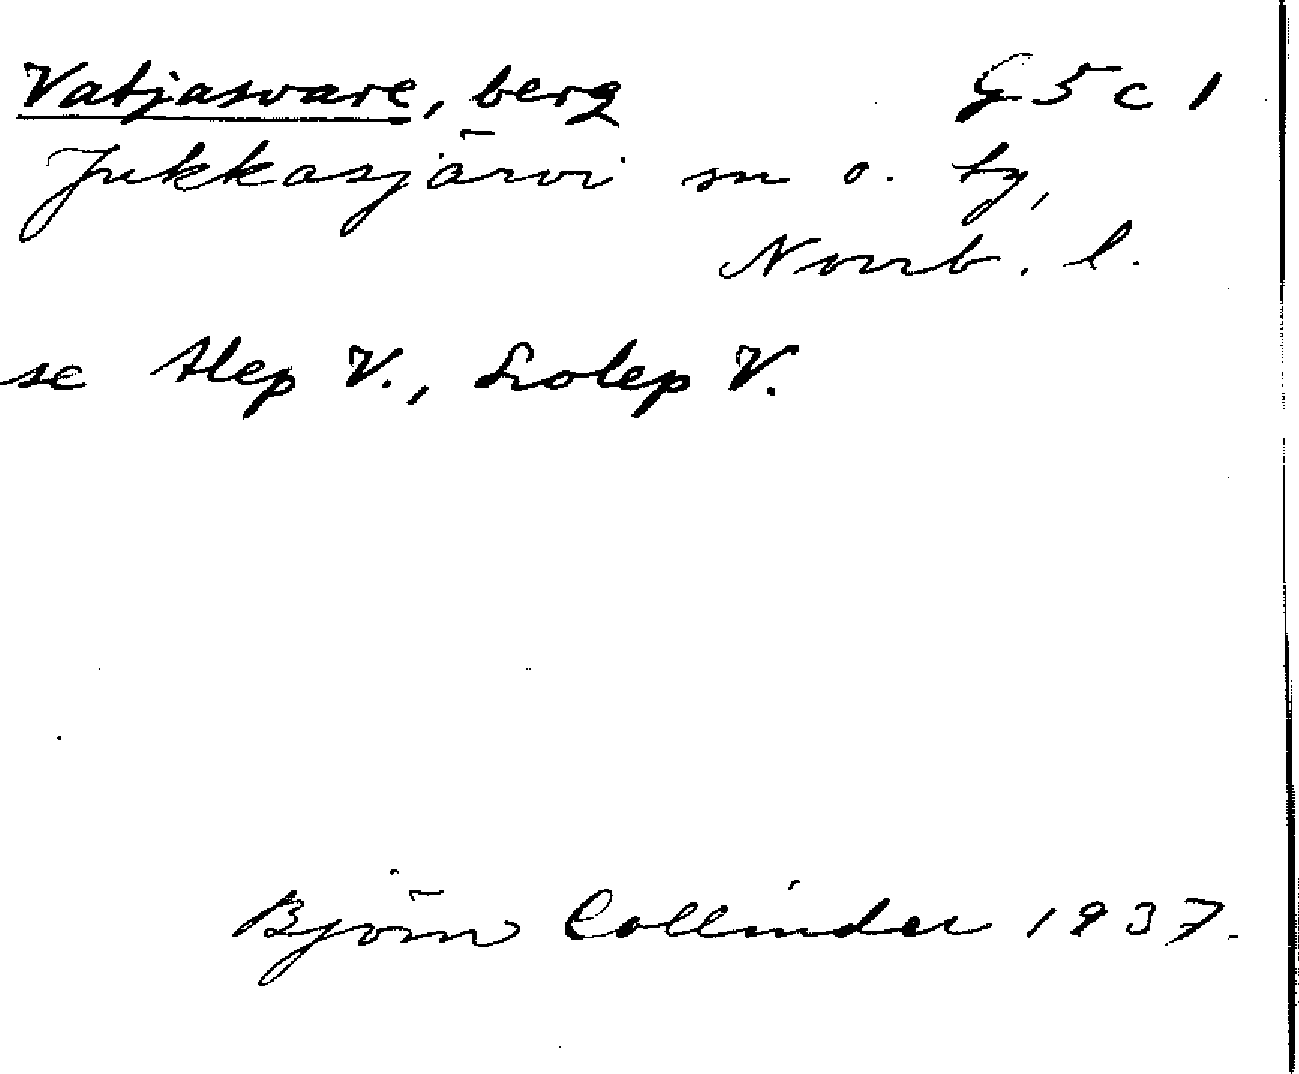 Vatjasvare, berg G 5 c 1
Jukkasjärvi sn o. ty,
Norrb. l.
se Alep V., Lolep V.
Björn Collinder 1937.